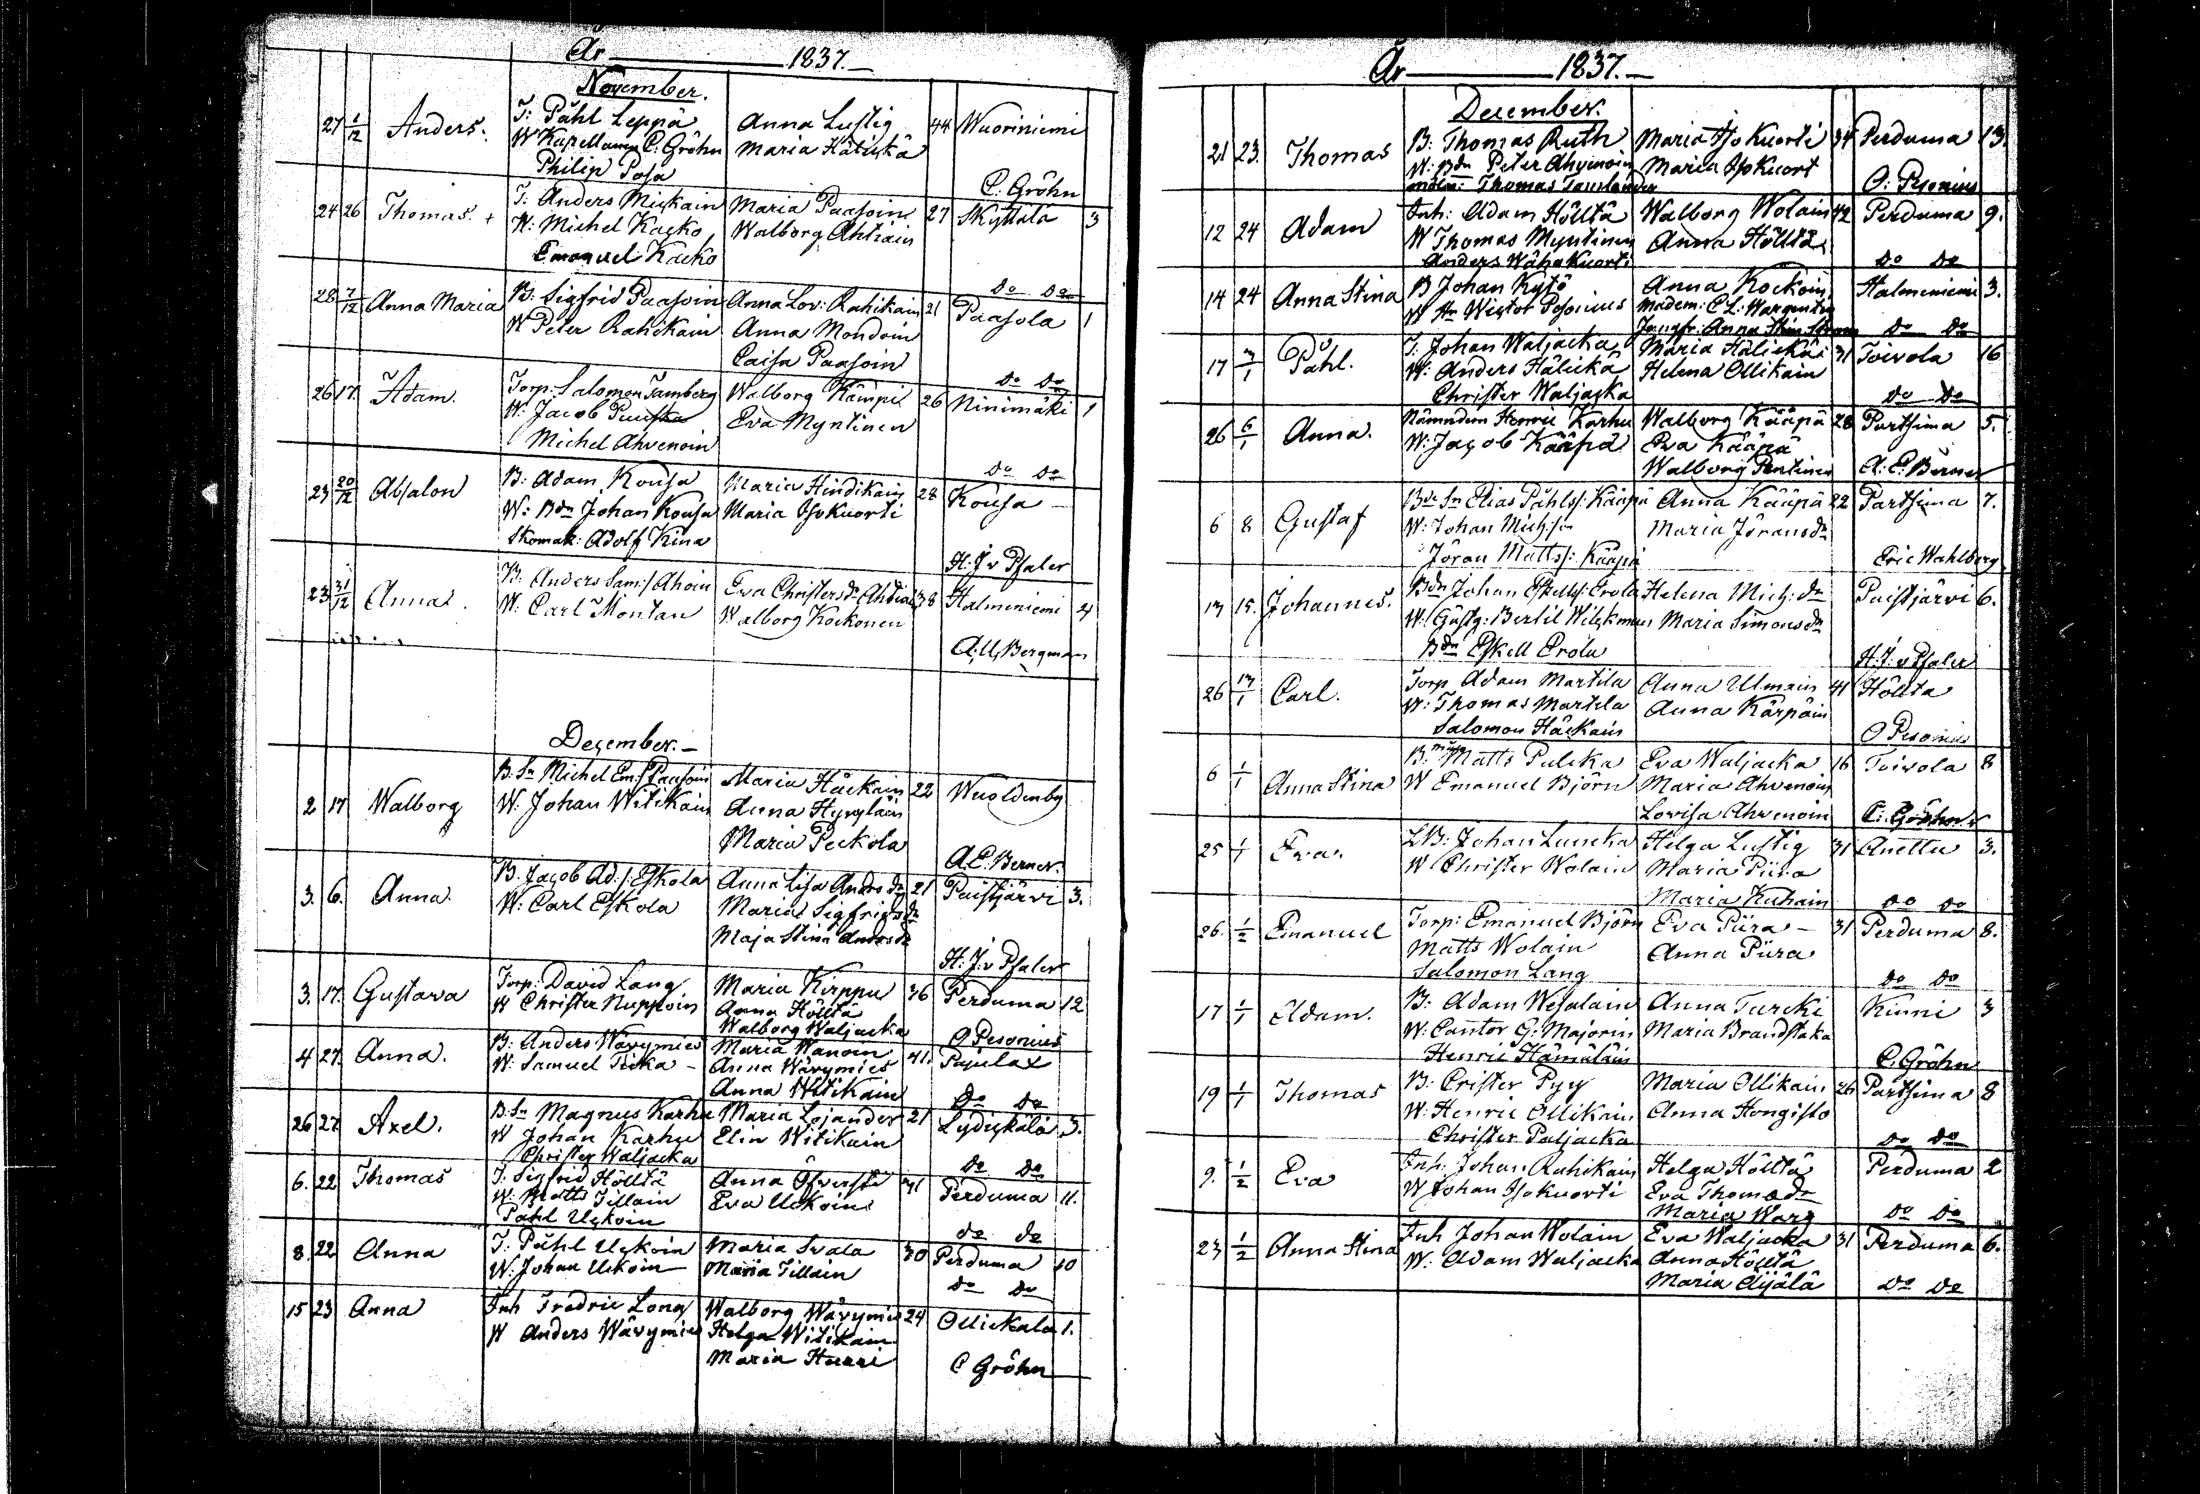 År 1837.
November.
27 1/12 Anders. T: Påhl Leppä Anna Lustig 44 Wuoriniemi
W Kapellanen C: Gröhn Maria Hälickä
Philip Posa C. Gröhn
24 26 Thomas. + T: Anders Mickain Maria Paasoin 27 Skyttälä 3
W: Michel Kacko Walborg Ahtiain
Emanuel Kacko do do
28 7/12 Anna Maria B: Sigfrid Paasoin Anna Lov: Rahikain 21 Paasola 1
W Peter Rahikain Anna Mondoin
Caisa Paasoin do do
26 17. Adam. Torp: Salomon Tamberg Walborg Kämpi 26 Ninimäki 1
W: Jacob Puusta Eva Myntinen
Michel Ahvenoin do do
23 20/12 Absalon B: Adam Kousa Maria Hindikain 28 Kousa
W: Bdn Johan Kousa Maria Isokuorti
Skomak: Adolf Kina H: J v Psaler
23 31/12 Anna. B: Anders Sam:s Ahoin Eva Christersdr Ahtiai 38 Halmeniemi 4
W: Carl Montan Walborg Kockonen
A: U, Bergman
December.
2 17 Walborg B: Sn Michel Em:s Paasoin Maria Häckain 22 Wuoldenby
W. Johan Witikain Anna Hyvyläin
Maria Peckola A. E. Berner.
3. 6. Anna. B. Jacob Ad:s: Eskola Anna Lisa Andrs dr 21 Paistjärvi 3.
W: Carl Eskola Maria Sigfrids dr
Maja Stina Andrs dr H: J: v Psaler
3. 17. Gustava Torp: David Lang Maria Kirppu 36 Perduma 12
W Christer Nuppoin Anna Höltta
Walborg Waljacka O Pesonius
4 27. Anna. B: Anders Wävymies Maria Wanoin 41. Pajulax
W: Samuel Ticka Anna Wävymies
Anna Witikain do do
26 27 Axel. B: Sn Magnus Karhu Maria Lojander 21 Lydickälä 3.
W Johan Karhu Elin Witikain
Christer Waljacka do do
6. 22 Thomas T: Sigfrid Hölttä Anna Öfversti 41 Perduma 11.
W: Matts Tillain Eva Uckoin
Påhl Uckoin do do
8. 22 Anna T: Påhl Uckoin Maria Svala 30 Perduma 10
W: Johan Uckoin Maria Tillain do do
15 23 Anna Inh Fredric Long Walborg Wävymies 24 Ollickala 1.
W Anders Wävymies Helga Witikain
Maria Hurri C Gröhn
År 1837.
December.
21 23. Thomas B: Thomas Ruth Maria Isokuorti 34 Perduma 13.
W: Bdn Peter Ahvenoin Maria Isokuort
Thomas O: Pesonius
12 24 Adam Inh: Adam Hölltä Walborg Wolain 42 Perduma 9.
W Thomas Myntinen Anna Hölltä
Anders Wähakuorti do do
14 24 Anna Stina B Johan Kytö Anna Kockoin Halmeniemi 3.
W Hr Wictor Pesonius Madem: C L: Wargentin
Jungfr: Anna Stin do do
17 3/1 Påhl. T. Johan Waljacka Maria Hälickä 31 Toivola 16
W: Anders Hälickä Helena Ollikain
Christer Waljacka do do
26 6/1 Anna. Nämndem Henric Karhu Walborg Kääpä 28 Partsima 5.
W: Jacob Kääpä Eva Kääpä
Walborg Pentinen A: E. Berner
6 8 Gustaf Bde Sn Elias Påhls: Kääpä Anna Kääpä 22 Partsima 7.
W: Johan Mich:sn Maria Jöransdr
Jöran Matts: Kääpä Eric Wahlberg
13 15. Johannes. Bdn Johan Eskells: Erola Helena Mich: dr Paistjärvi 6.
W: Gästg: Bertil Wilckman Maria Simonsdr
Bdn Eskell Erola H: J: v Psaler
26 13/1 Carl. Torp Adam Martila Anna Ulmain 41 Höltta
W: Thomas Martila Anna Kärpäin
Salomon Häckain O Pesonius
6 1/1 Anna Stina B. Matts Pulcka Eva Waljacka 16 Toivola 8
W Emanuel Björn Maria Ahvenoin
Lovisa Ahvenoin C. Gröhn
25 1/1 Eva. LB: Johan Luncka Helga Lustig 31 Anettu 3.
W Christer Wolain Maria Piira
Maria Kuhain do do
26. 1/2 Emanuel Torp: Emanuel Björn Eva Piira 31 Perduma 8.
Matts Wolain Anna Piira
Salomon Lang do do
17 1/1 Adam. B: Adam Wesalain Anna Turcki Kinni 3
W: Cantor G: Majorin Maria Brandstaka
Henric Hämäläin C. Gröhn
19 1/1 Thomas B: Crister Pyy Maria Ollikain 26 Partsima 8
W: Henric Ollikain Anna Hongisto
Christer Paljacka do do
9. 1/2 Eva Inh: Johan Rahikain Helga Hölttä Perduma 2
W Johan Isokuorti Eva Thomsdr
Maria Warg do do
23 1/2 Anna Stina Inh Johan Wolain Eva Waljacka 31 Perduma 6.
W: Adam Waljacka Anna Hölttä
Maria Aijälä do do